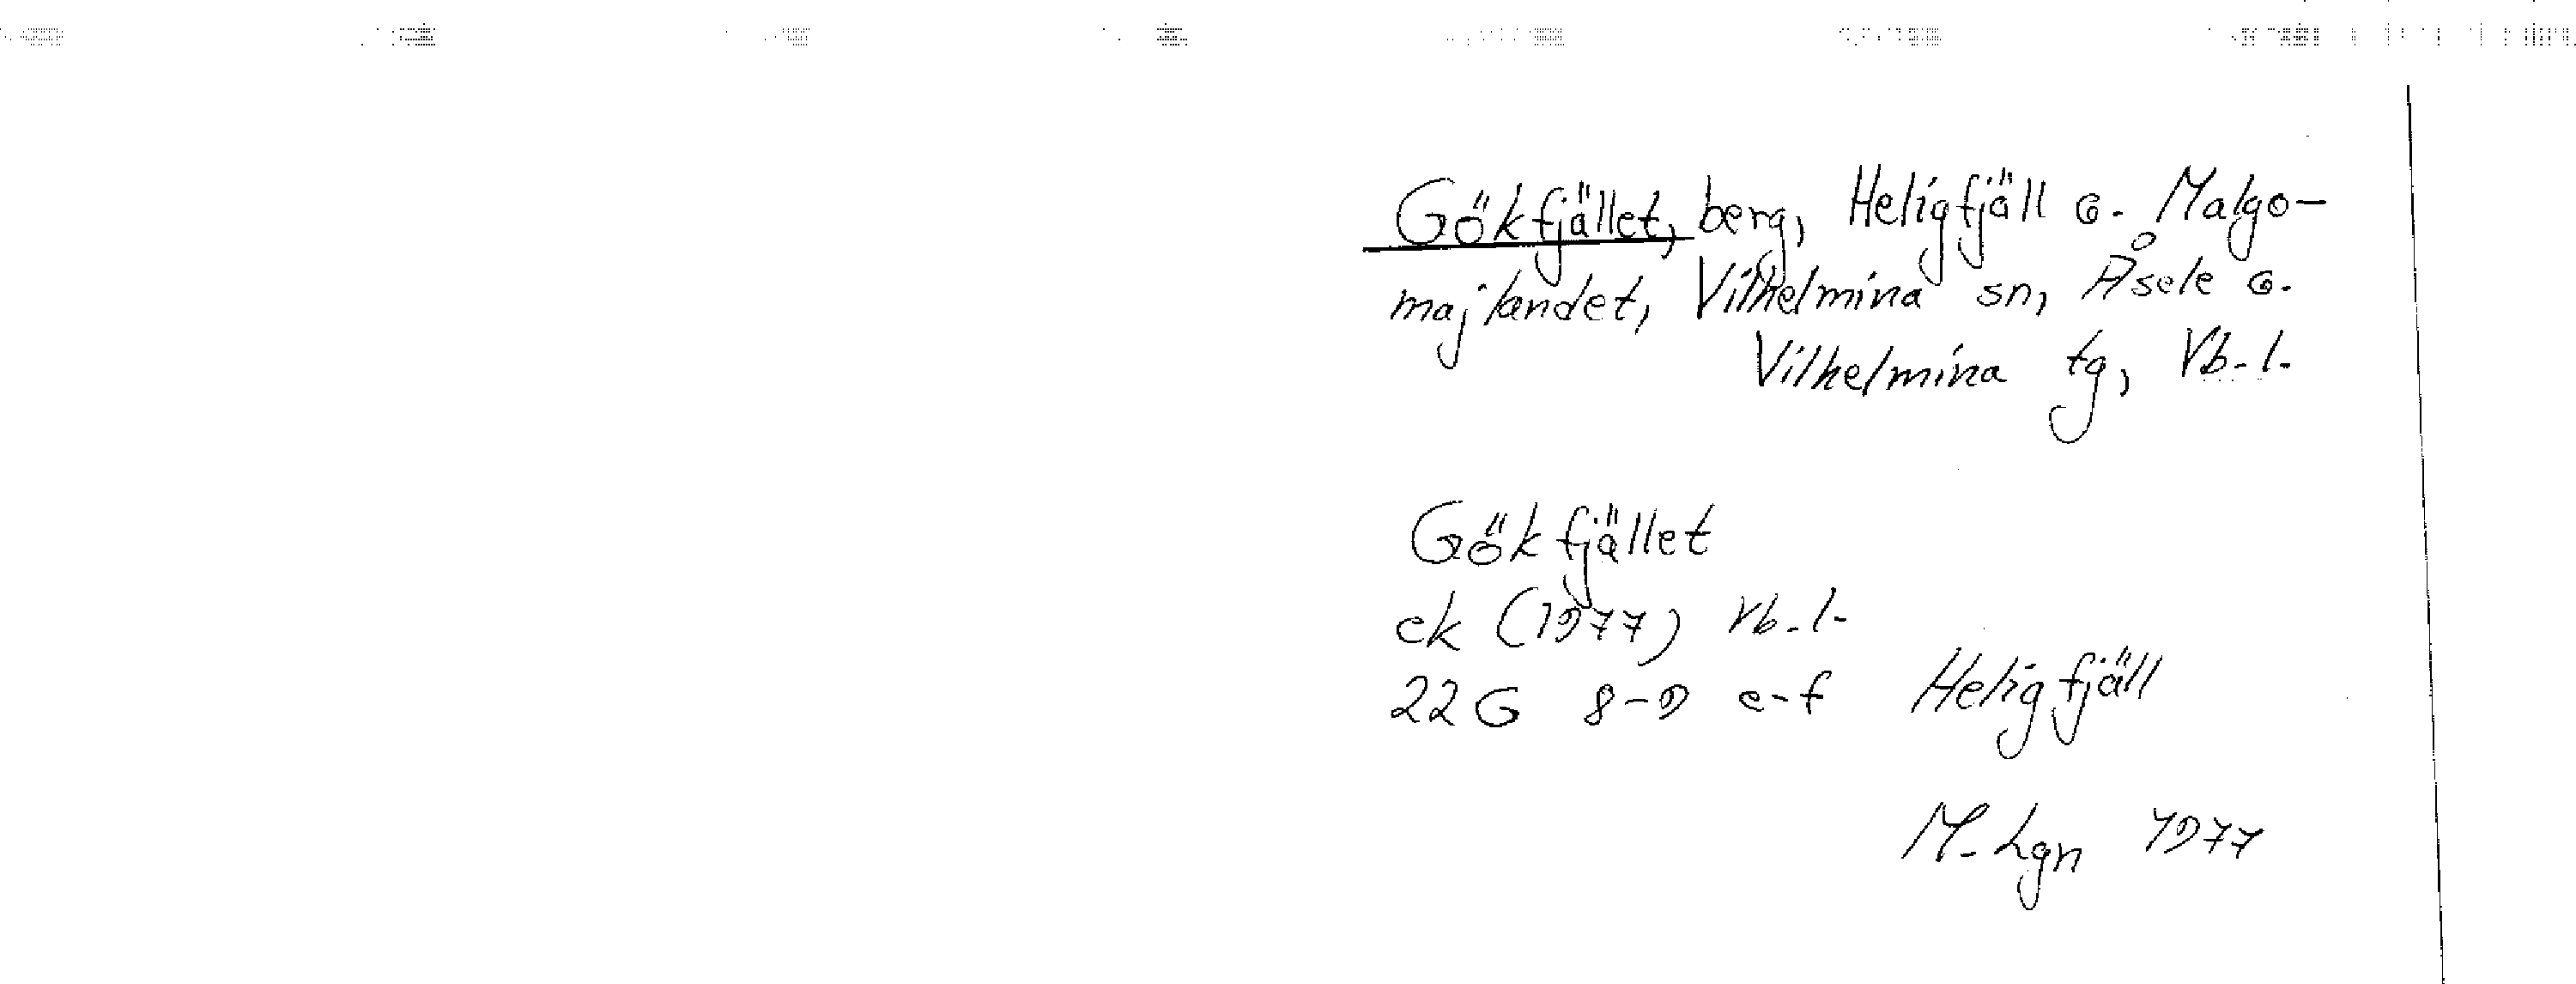 Gökfjället, berg, Heligfjäll o. Malgo-
majlandet, Vilhelmina sn, Åsele o.
Vilhelmina tg, Vb. l.
Gökfjället
ek (1977) Vb. l.
22G 8-9 e-f Heligfjäll
M. Lgn 1977